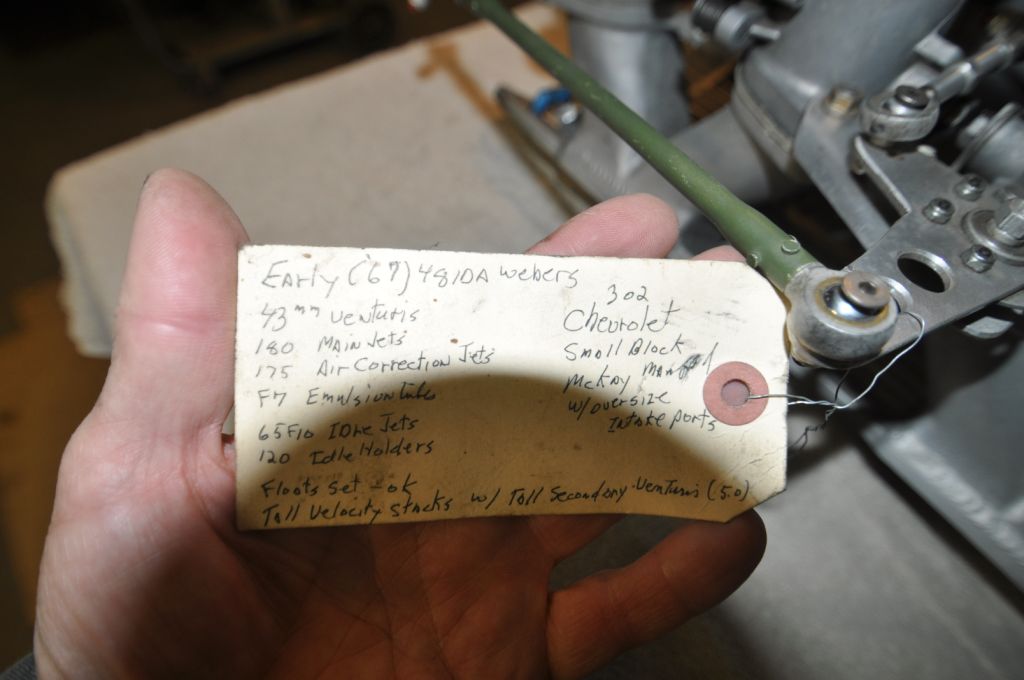 Early ('67) 48IDA Webers
43mm Venturis
180 Main Jets
175 Air Correction Jets
F7 Emulsion Tubes
65F10 Idle Jets
120 Idle Holders
Floats Set - ok
Tall Velocity Stacks w/ Tall Secondary Venturis (5.0)
302
Chevrolet
Small Block
McKay
w/oversize
Intake Ports